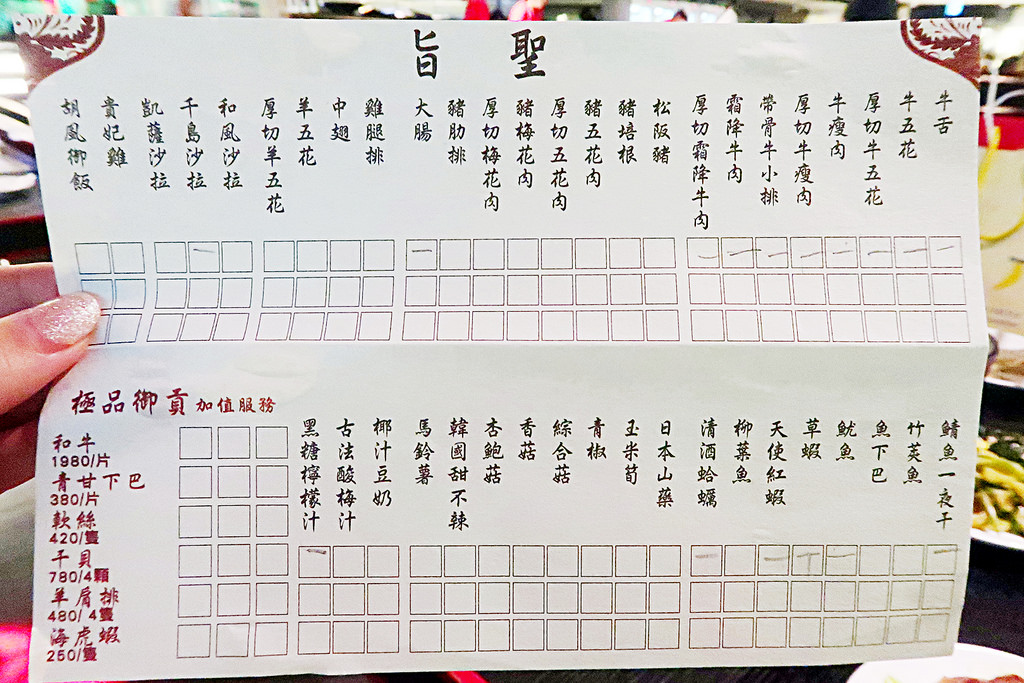 聖旨
牛舌
牛五花
厚切牛五花
牛瘦肉
厚切牛瘦肉
帶骨牛小排
霜降牛肉
厚切霜降牛肉
松阪豬
豬培根
豬五花肉
厚切五花肉
豬梅花肉
厚切梅花肉
豬肋排
大腸
雞腿排
中翅
羊五花
厚切羊五花
和風沙拉
千島沙拉
凱薩沙拉
貴妃雞
胡風御飯
鯖魚一夜干
竹莢魚
魚下巴
魷魚
草蝦
天使紅蝦
柳葉魚
清酒蛤蠣
日本山藥
玉米筍
青椒
綜合菇
香菇
杏鮑菇
韓國甜不辣
馬鈴薯
椰汁豆奶
古法酸梅汁
黑糖檸檬汁
極品御貢 加值服務
和牛
1980/片
青甘下巴
380/片
軟絲
420/隻
干貝
780/4顆
羊肩排
480/4隻
海虎蝦
250/隻